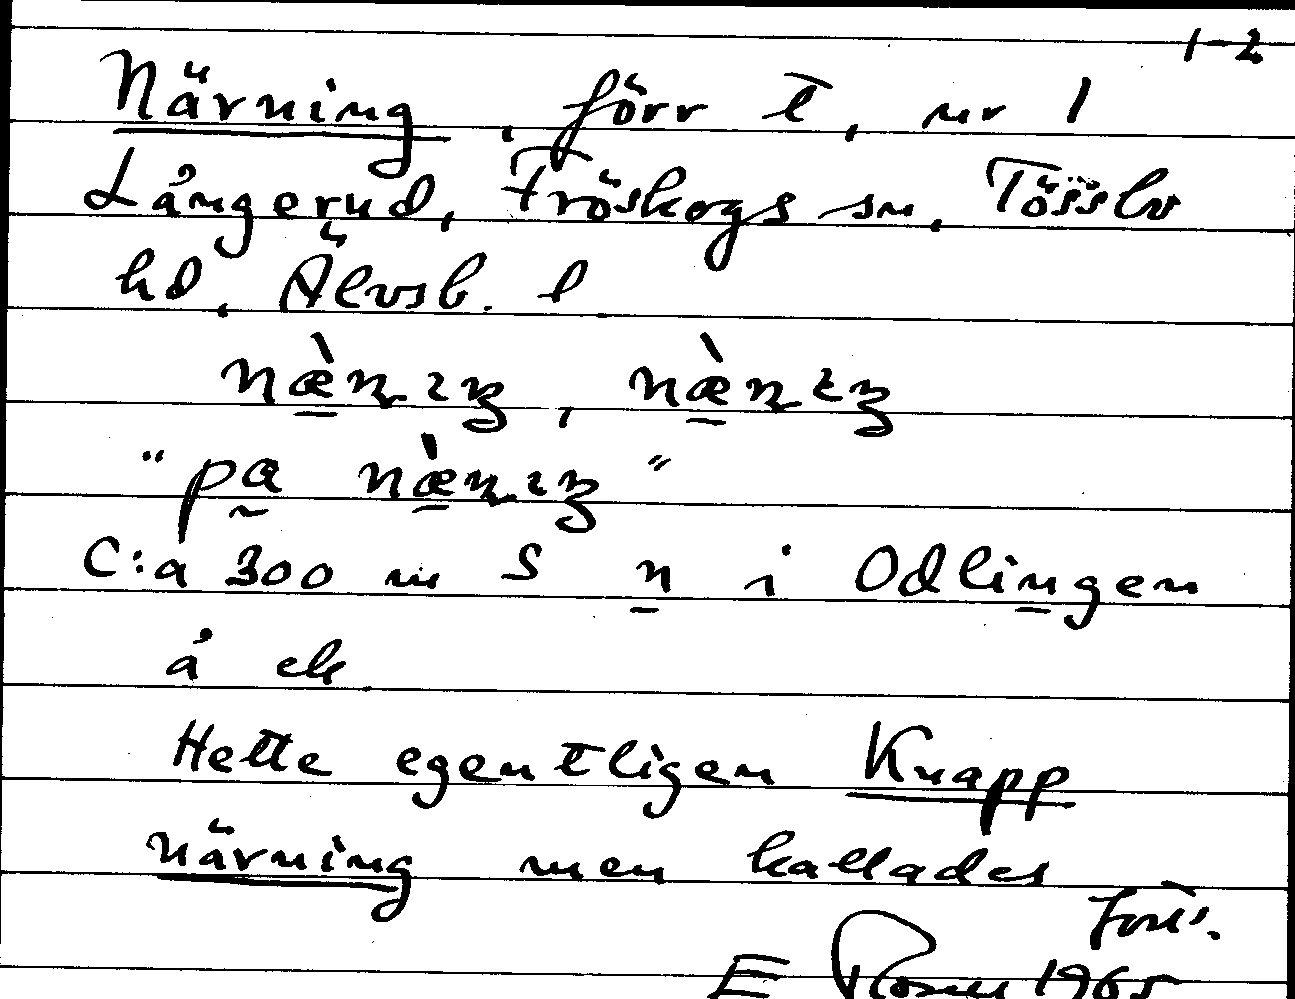 1-2
Närning, förr t, nr 1
Långerud, Fröskogs sn, Tössbo
hd, Älvsb. l
næ̀n̠ɪŋ, næ̀n̠ɪŋ
"pa næ̀n̠ɪŋ"
C:a 300 m S n i Odlingen
å ek
Hette egentligen Knapp
närning men kallades
forts.
E 1965